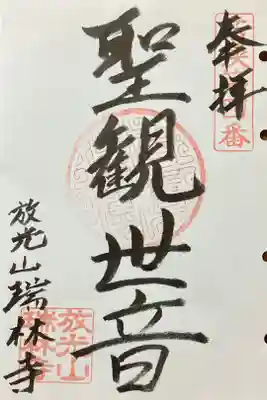 奉拝
聖観世音
放光山瑞林寺
放光山
瑞林寺